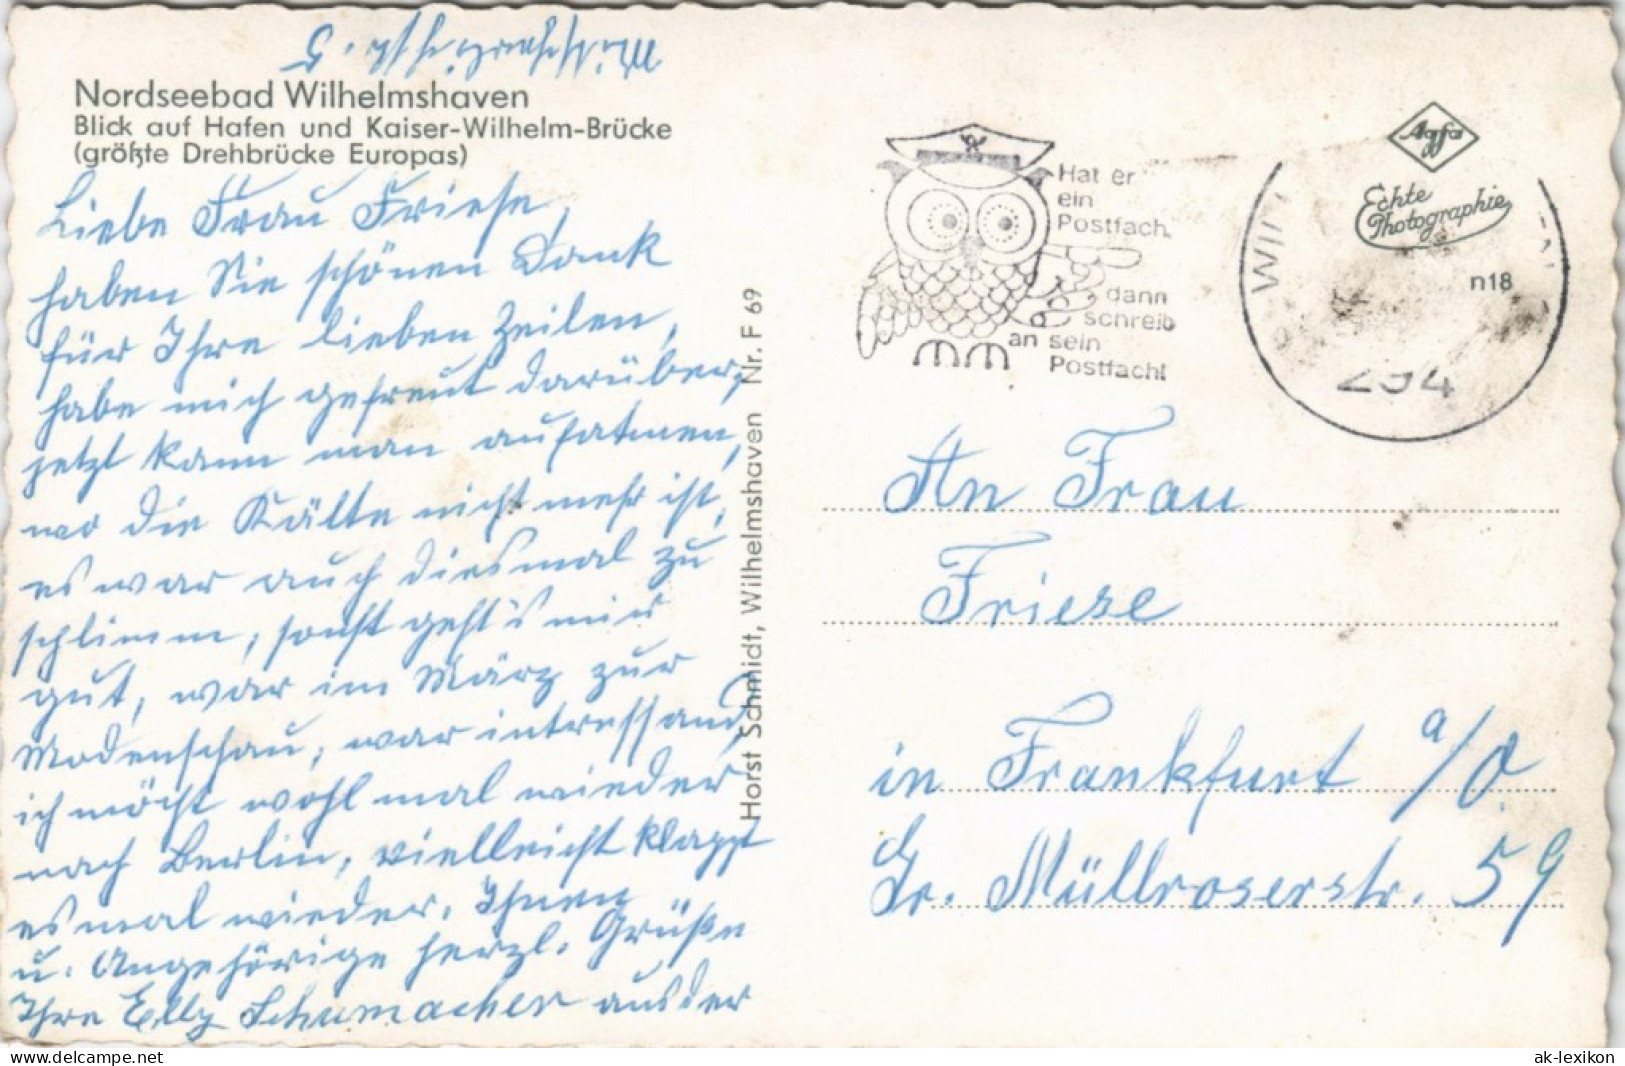 Nordseebad Wilhelmshaven
Blick auf Hafen und Kaiser-Wilhelm-Brücke
(größte Drehbrücke Europas)
Liebe Frau Friese,
haben Sie schönen Dank
für Ihre lieben Zeilen,
habe mich gefreut darüber,
jetzt kann man aufatmen,
wo die Kälte nicht mehr ist,
es war auch diesmal zu
schlimm, sonst geht's mir
gut, war im März zur
Modenschau, war intressand,
ich möcht wohl mal wieder
nach Berlin, vielleicht klappt
es mal wieder. Ihnen
u. Angehörige herzl. Grüße
Ihre Elly Schumacher aus der
Horst Schmidt, Wilhelmshaven Nr. F 69
Hat er
ein
Postfach,
dann
schreib
an sein
Postfach!
294
Agfa
Echte
Photographie
n18
An Frau
Friese
in Frankfurt a/O.
Gr. Müllroserstr. 59
ak-lexikon
www.delcampe.net